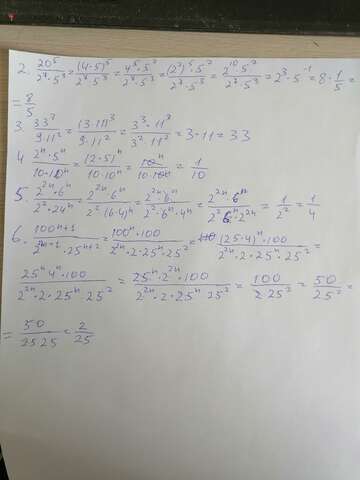 2. 20⁵/(2⁷·5³) = (4·5)⁵/(2⁷·5³) = 4⁵·5²/(2⁷·5³) = (2²)⁵·5²/(2⁷·5³) = 2¹⁰·5²/(2⁷·5³) = 2³·5⁻¹ = 8·1/5 =
= 8/5
3. 33³/(9·11²) = (3·11)³/(9·11²) = 3³·11³/(3²·11²) = 3·11 = 33
4 2ⁿ·5ⁿ/(10·10ⁿ) = (2·5)ⁿ/(10·10ⁿ) = 10ⁿ/(10·10ⁿ) = 1/10
5. 2²ⁿ·6ⁿ/(2²·24ⁿ) = 2²ⁿ·6ⁿ/(2²·(6·4)ⁿ) = 2²ⁿ·6ⁿ/(2²·6ⁿ·4ⁿ) = 2²ⁿ·6ⁿ/(2²·6ⁿ·2²ⁿ) = 1/2² = 1/4
6. 100ⁿ⁺¹/(2²ⁿ⁺¹·25ⁿ⁺²) = 100ⁿ·100/(2²ⁿ·2·25ⁿ·25²) = (25·4)ⁿ·100/(2²ⁿ·2·25ⁿ·25²) =
25ⁿ·4ⁿ·100/(2²ⁿ·2·25ⁿ·25²) = 25ⁿ·2²ⁿ·100/(2²ⁿ·2·25ⁿ·25²) = 100/(2·25²) = 50/25² =
= 50/(25·25) = 2/25